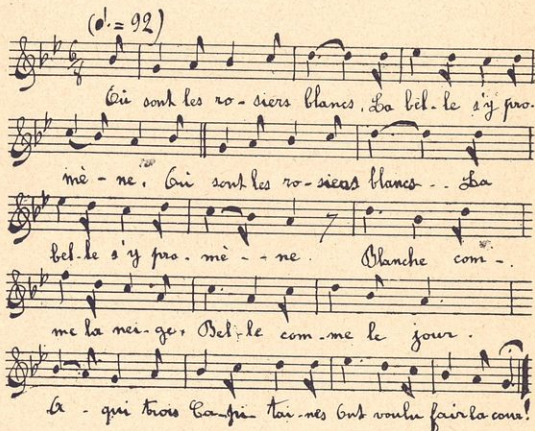 (♩. = 92)
Où sont les ro-siers blancs, La bel-le s'y pro-
mè-ne, Où sont les ro-siers blancs -- La
bel-le s'y pro-mè--ne. Blanche com-
me la nei-ge, Bel-le com-me le jour.
A-qui trois Ca-pi-tai-nes Ont voulu fair la cour!